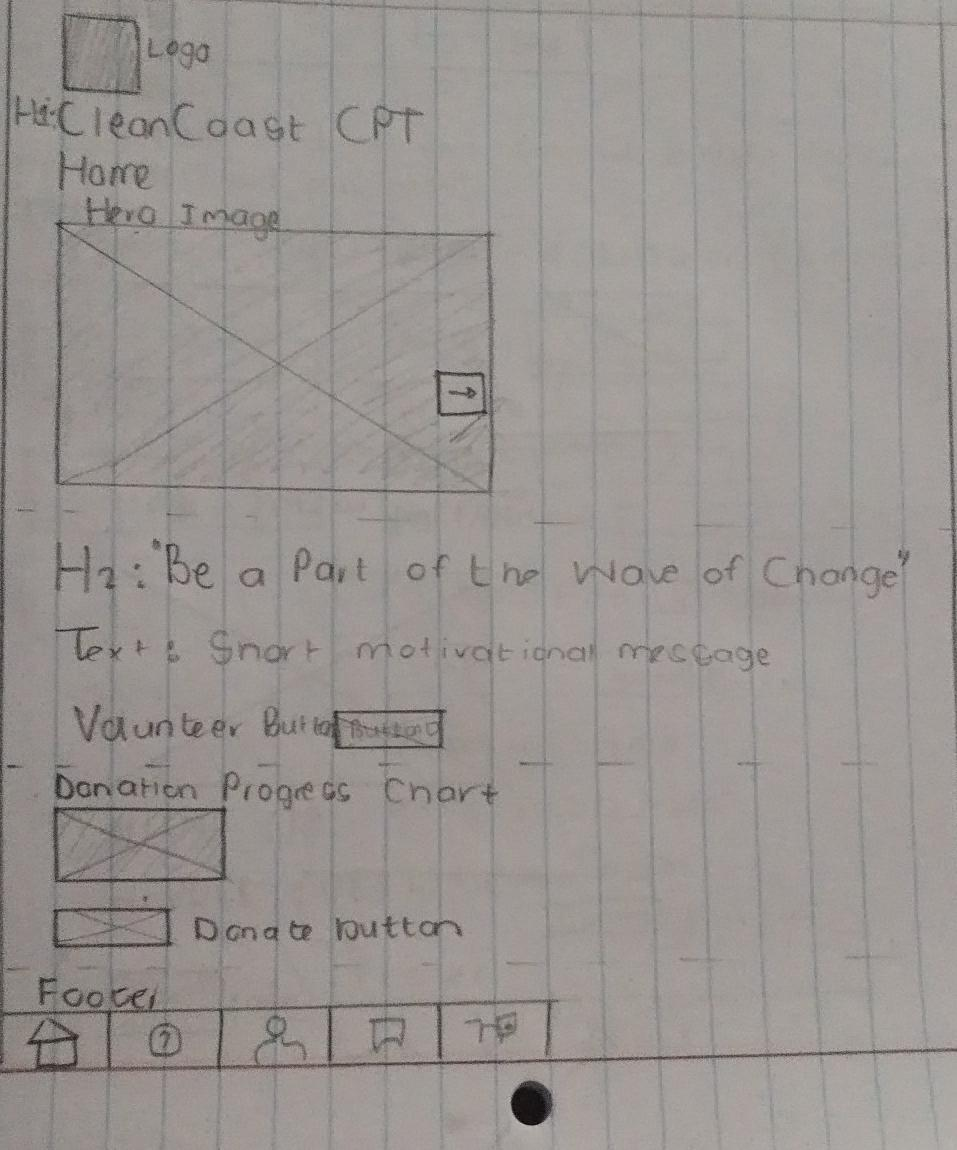 Logo
H1: CleanCoast CPT
Home
Hero Image
→
H2: "Be a Part of the Wave of Change"
Text: Short motivational message
Valunteer Button Button
Donation Progress Chart
Donate button
Footer
?